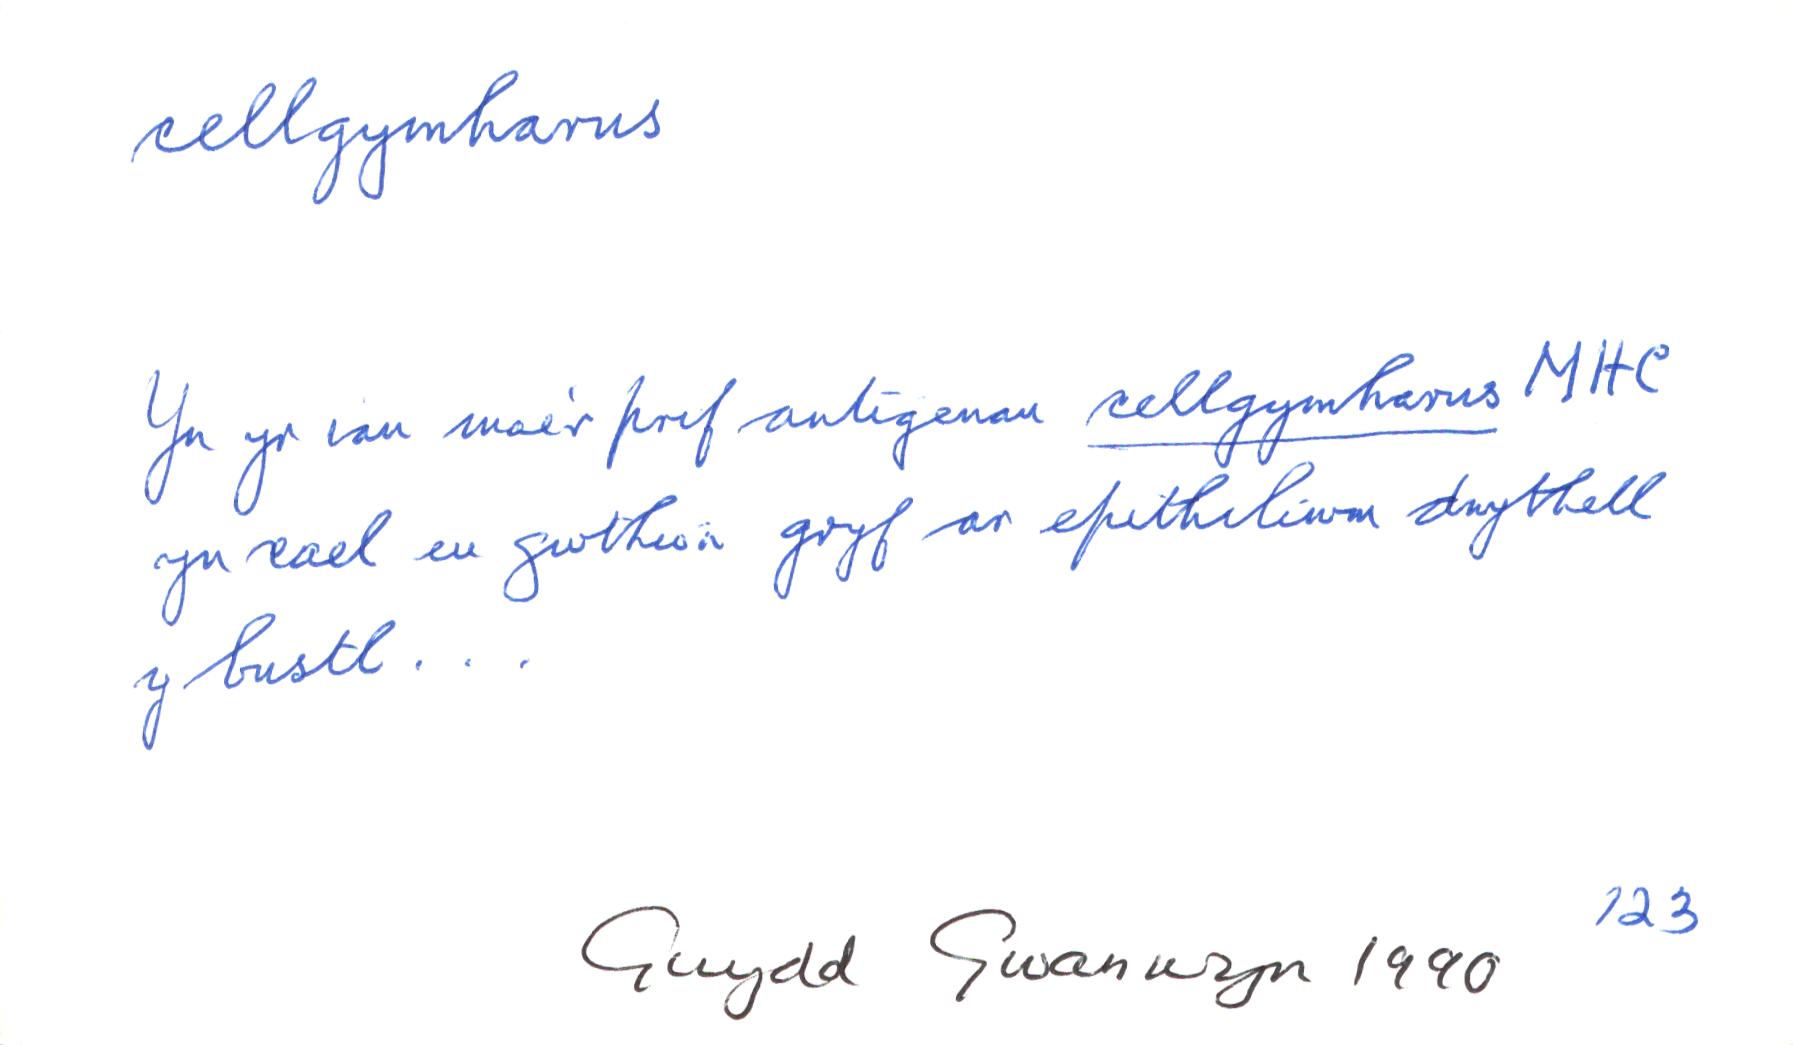 cellgymharus
Yn yr iau mae'r prif antigenau cellgymharus MHC
yn cael eu gwthio'n gryf ar epitheliwm dwythell
y bustl...
123
Gwydd Gwanwyn 1990